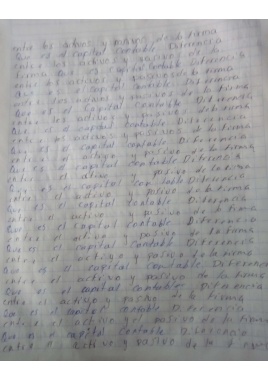 entre los activos y pasivos de la firma
Que es el capital contable Diferencia
entre los activos y pasivos de la
firma Que es el capital contable Diferencia
entre los activos y pasivos de la firma
Que es el capital contable Diferencia
entre los activos y pasivos de la firma
Que es el capital contable Diferencia
entre los activos y pasivos de la firma
Que es el capital contable Diferencia
entre los activos y pasivos de la firma
Que es el capital contable Diferencia
entre el activo y pasivo de la firma
Que es el capital contable Diferencia
entre el activo y pasivo de la firma
Que es el capital contable Diferencia
entre el activo y pasivo de la firma
Que es el capital contable Diferencia
entre el activo y pasivo de la firma
Que es el capital contable Diferencia
entre el activo y pasivo de la firma
Que es el capital contable Diferencia
entre el activo y pasivo de la firma
Que es el capital contable Diferencia
entre el activo y pasivo de la firma
Que es el capital contable Diferencia
entre el activo y pasivo de la firma
Que es el capital contable Diferencia
entre el activo y el pasivo de la firma
Que es el capital contable Diferencia
entre el activo y pasivo de la firma